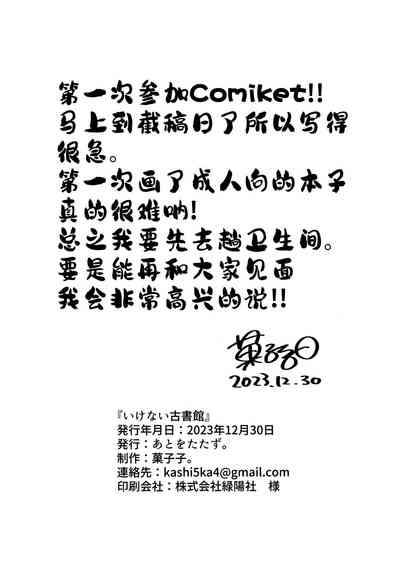 第一次参加Comiket!!
马上到截稿日了所以写得
很急。
第一次画了成人向的本子
真的很难呐!
总之我要先去趟卫生间。
要是能再和大家见面
我会非常高兴的说!!
菓子子曰
2023.12.30
『いけない古書館』
発行年月日：2023年12月30日
発行：あとをたたず。
制作：菓子子。
連絡先：kashi5ka4@gmail.com
印刷会社：株式会社緑陽社　様